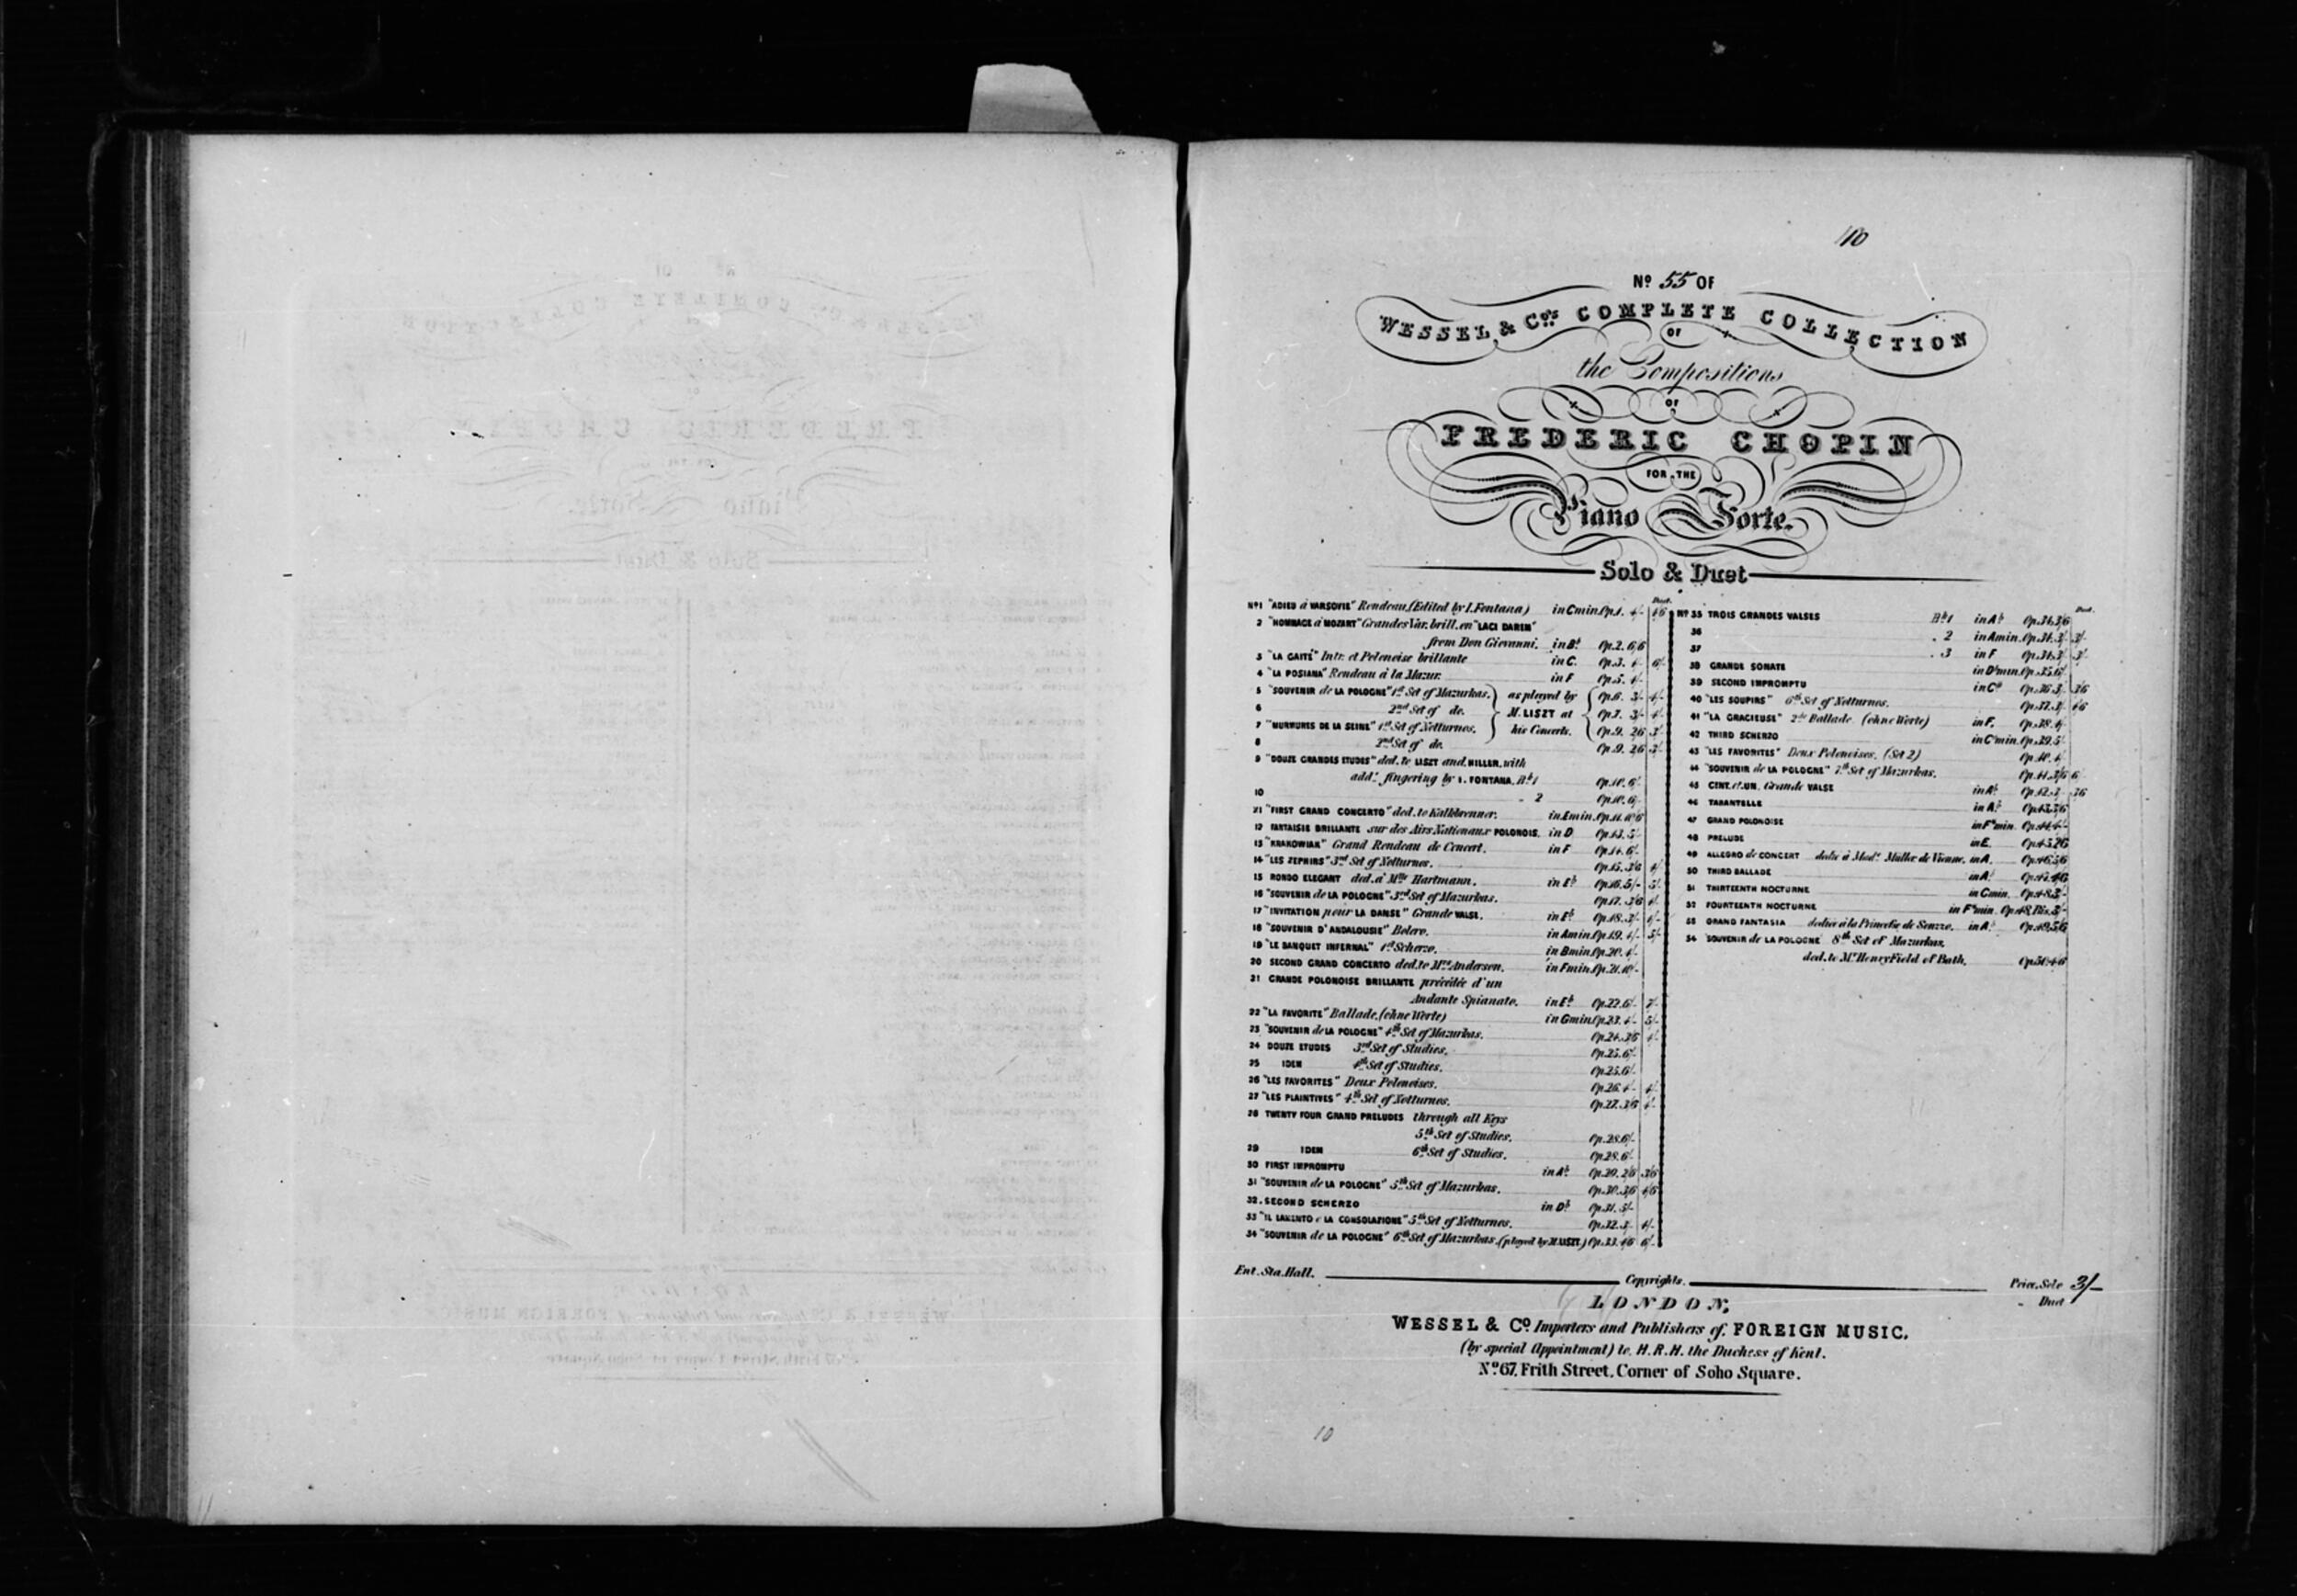 40
No 55 OF
WESSEL & Co's COMPLETE COLLECTION
OF
the Compositions
OF
FREDERIC CHOPIN
FOR THE
Piano Forte.
Solo & Duet
Duet.
No 1 "ADIEU à VARSOVIE" Rondeau, (Edited by I. Fontana) in C min. Op. 1. 4/- 4/6
2 "HOMMAGE à MOZART" Grandes Var. brill. en "LACI DAREM"
from Don Giovanni. in B♭ Op. 2. 6/6
3 "LA GAITÉ" Intr. et Polonoise brillante in C. Op. 3. 4/- 6/-
4 "LA POSIANA" Rondeau à la Mazur. in F Op. 5. 4/-
5 "SOUVENIR de LA POLOGNE" 1st Set of Mazurkas. as played by Op. 6. 3/- 4/-
6 2nd Set of do. M. LISZT at Op. 7. 3/- 4/-
7 "MURMURES DE LA SEINE" 1st Set of Notturnos. his Concerts. Op. 9. 2/6 3/-
8 2nd Set of do. Op. 9. 2/6 3/-
9 "DOUZE GRANDES ETUDES" ded. to LISZT and HILLER, with
add! fingering by I. FONTANA. Bk 1 Op. 10. 6/-
10 " 2 Op. 10. 6/-
11 "FIRST GRAND CONCERTO" ded. to Kalkbrenner. in E min. Op. 11. 10/6
12 FANTAISIE BRILLANTE sur des Airs Nationaux POLONOIS. in D Op. 13. 5/-
13 "KRAKOWIAK" Grand Rondeau de Concert. in F Op. 14. 6/-
14 "LES ZEPHIRS" 3rd Set of Notturnos. Op. 15. 3/6 4/-
15 RONDO ELEGANT ded. à Mlle Hartmann. in E♭ Op. 16. 5/- 5/-
16 "SOUVENIR de LA POLOGNE" 3rd Set of Mazurkas. Op. 17. 3/6 4/-
17 "INVITATION pour LA DANSE" Grande VALSE. in E♭ Op. 18. 3/- 4/-
18 "SOUVENIR D'ANDALOUSIE" Bolero. in A min. Op. 19. 4/- 5/-
19 "LE BANQUET INFERNAL" 1st Scherzo. in B min. Op. 20. 4/-
20 SECOND GRAND CONCERTO ded. to Mrs Anderson. in F min. Op. 21. 10/-
21 GRANDE POLONOISE BRILLANTE précédée d'un
Andante Spianato. in E♭ Op. 22. 6/- 7/-
22 "LA FAVORITE" Ballade. (ohne Worte) in G min. Op. 23. 4/- 5/-
23 "SOUVENIR de LA POLOGNE" 4th Set of Mazurkas. Op. 24. 3/6 4/-
24 DOUZE ETUDES 3rd Set of Studies. Op. 25. 6/-
25 IDEM 4th Set of Studies. Op. 25. 6/-
26 "LES FAVORITES" Deux Polonoises. Op. 26. 4/- 4/-
27 "LES PLAINTIVES" 4th Set of Notturnos. Op. 27. 3/6 4/-
28 TWENTY FOUR GRAND PRELUDES through all Keys
5th Set of Studies. Op. 28. 6/-
29 IDEM 6th Set of Studies. Op. 28. 6/-
30 FIRST IMPROMPTU in A♭ Op. 29. 2/6 3/6
31 "SOUVENIR de LA POLOGNE" 5th Set of Mazurkas. Op. 30. 3/6 4/6
32. SECOND SCHERZO in D♭ Op. 31. 5/-
33 "IL LAMENTO e LA CONSOLAZIONE" 5th Set of Notturnos. Op. 32. 3/- 4/-
34 "SOUVENIR de LA POLOGNE" 6th Set of Mazurkas (played by M. LISZT.) Op. 33. 4/6 6/-
Duet.
No 35 TROIS GRANDES VALSES No 1 in A♭ Op. 34. 3/6
36 . 2 in A min. Op. 34. 3/- 3/-
37 . 3 in F Op. 34. 3/- 3/-
38 GRANDE SONATE in D♭ min. Op. 35. 6/-
39 SECOND IMPROMPTU in C# Op. 36. 3/- 3/6
40 "LES SOUPIRS" 6th Set of Notturnos. Op. 37. 3/- 4/6
41 "LA GRACIEUSE" 2de Ballade (ohne Worte) in F. Op. 38. 4/-
42 THIRD SCHERZO in C# min. Op. 39. 5/-
43 "LES FAVORITES" Deux Polonoises. (Set 2) Op. 40. 4/-
44 "SOUVENIR de LA POLOGNE" 7th Set of Mazurkas. Op. 41. 3/6 6
45 CENT. et. UN. Grande VALSE in A♭ Op. 42. 3/- 3/6
46 TARANTELLE in A♭ Op. 43. 3/6
47 GRAND POLONOISE in F# min. Op. 44. 4/-
48 PRELUDE in E. Op. 45. 2/6
49 ALLEGRO de CONCERT dédié à Madlle Müller de Vienne, in A. Op. 46. 5/6
50 THIRD BALLADE in A♭ Op. 47. 4/6
51 THIRTEENTH NOCTURNE in C min. Op. 48. 3/-
52 FOURTEENTH NOCTURNE in F# min. Op. 48. Bis. 3/-
53 GRAND FANTASIA dediée à la Princesse de Souzzo. in A♭ Op. 49. 5/6
54 "SOUVENIR de LA POLOGNE 8th Set of Mazurkas,
ded. to Mr Henry Field of Bath. Op. 50. 4/6
Ent. Sta. Hall. Copyrights. Price. Solo 3/-
" Duet
LONDON,
WESSEL & Co. Importers and Publishers of, FOREIGN MUSIC.
(by special Appointment) to, H.R.H. the Duchess of Kent.
No. 67, Frith Street, Corner of Soho Square.
10